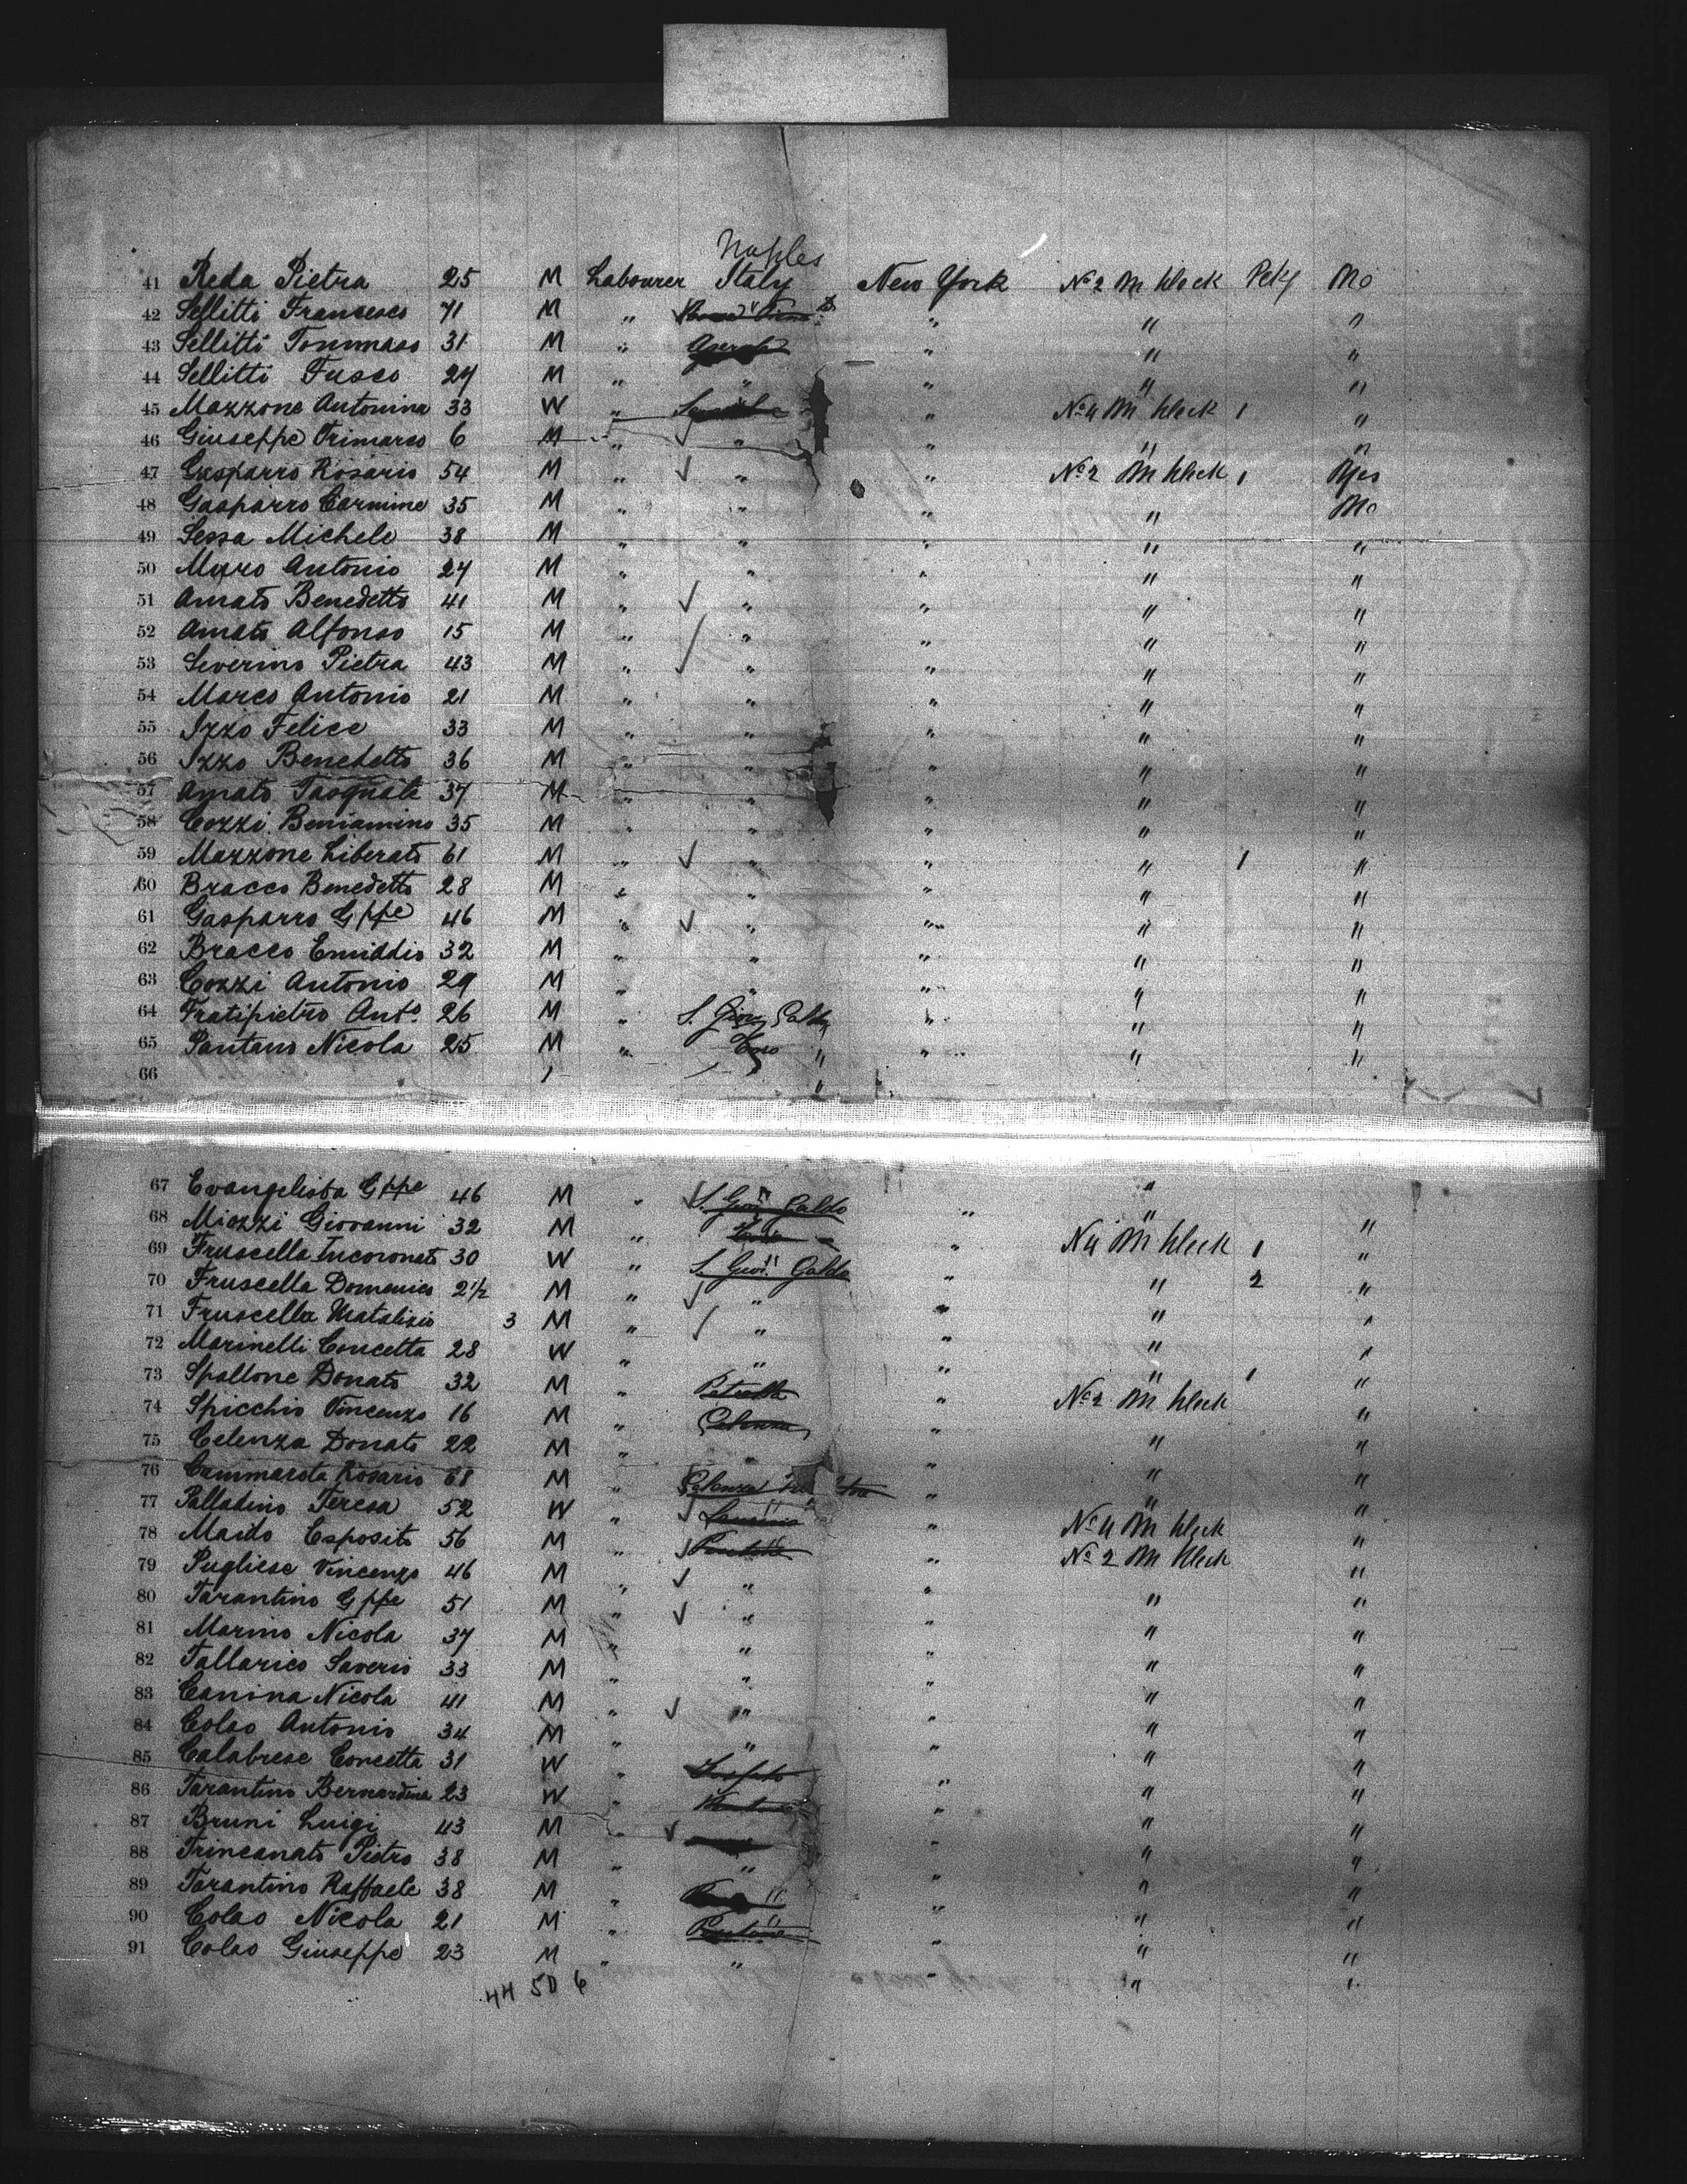 Naples
41 Reda Pietra 25 M Labourer Italy New York No 2 M kleck Pckg No
42 Sellitti Francesco 71 M " " " "
43 Sellitti Tommaso 31 M " " " "
44 Sellitti Fusco 24 M " " " " "
45 Mazzone Antonina 33 W " " No 4 M kleck 1 "
46 Giuseppe Trimarco 6 M " " " " "
47 Gasparro Rosario 54 M " " " No 2 M kleck 1 Yes
48 Gasparro Carmine 35 M " " " " No
49 Sessa Michele 38 M " " " " "
50 Muro Antonio 24 M " " " " "
51 Amato Benedetto 41 M " " " " "
52 Amato Alfonso 15 M " " " " "
53 Severino Pietra 43 M " " " " "
54 Marco Antonio 21 M " " " " "
55 Izzo Felice 33 M " " " " "
56 Izzo Benedetto 36 M " " " " "
57 Amato Pasquale 37 M " " " " "
58 Cozzi Beniamino 35 M " " " " "
59 Mazzone Liberato 61 M " " " " 1 "
60 Bracco Benedetto 28 M " " " " "
61 Gasparro Gppe 46 M " " " " "
62 Bracco Emiddio 32 M " " " " "
63 Cozzi Antonio 29 M " " " " "
64 Fratipietro Anto. 26 M " S. Giov Galdo " " "
65 Pantano Nicola 25 M " " " " "
66
67 Evangelista Gppe 46 M " S. Giov Galdo " "
68 Miozzi Giovanni 32 M " " "
69 Fruscella Incoronata 30 W " S. Giov. Galdo " N 4 M kleck 1 "
70 Fruscella Domenico 2 1/2 M " " " " 2 "
71 Fruscella Natalizio 3 M " " " " "
72 Marinelli Concetta 28 W " " " " "
73 Spallone Donato 32 M " Petrella " " 1 "
74 Spicchio Vincenzo 16 M " Celenza " No 2 M kleck "
75 Celenza Donato 22 M " " " " "
76 Cammarota Rosario 68 M " Celenza " " "
77 Palladino Teresa 52 W " " No 4 M kleck "
78 Maido Esposito 56 M " " No 2 M kleck "
79 Pugliese Vincenzo 46 M " " " "
80 Tarantino Gppe 51 M " " " " "
81 Marino Nicola 37 M " " " " "
82 Tallarico Saverio 33 M " " " " "
83 Canina Nicola 41 M " " " " "
84 Colao Antonio 34 M " " " " "
85 Calabrese Concetta 31 W " " " "
86 Tarantino Bernardina 23 W " " " "
87 Bruni Luigi 43 M " " " "
88 Trincanato Pietro 38 M " " " " "
89 Tarantino Raffaele 38 M " " " "
90 Colao Nicola 21 M " " " "
91 Colao Giuseppe 23 M " " " " "
44 50 6